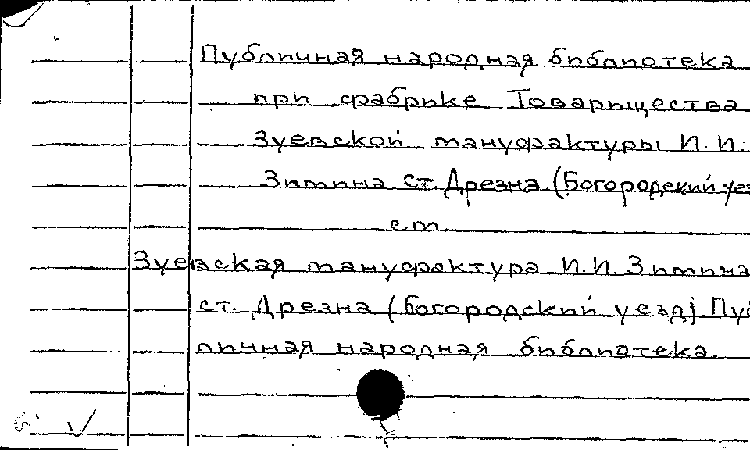 Публичная народная библиотека
при фабрике Товарищества
Зуевской мануфактуры И.И.
Зимина ст. Дрезна (Богородский уез
см.
Зуевская мануфактура И.И. Зимина
ст. Дрезна (Богородский уезд) Пуб
личная народная библиотека.